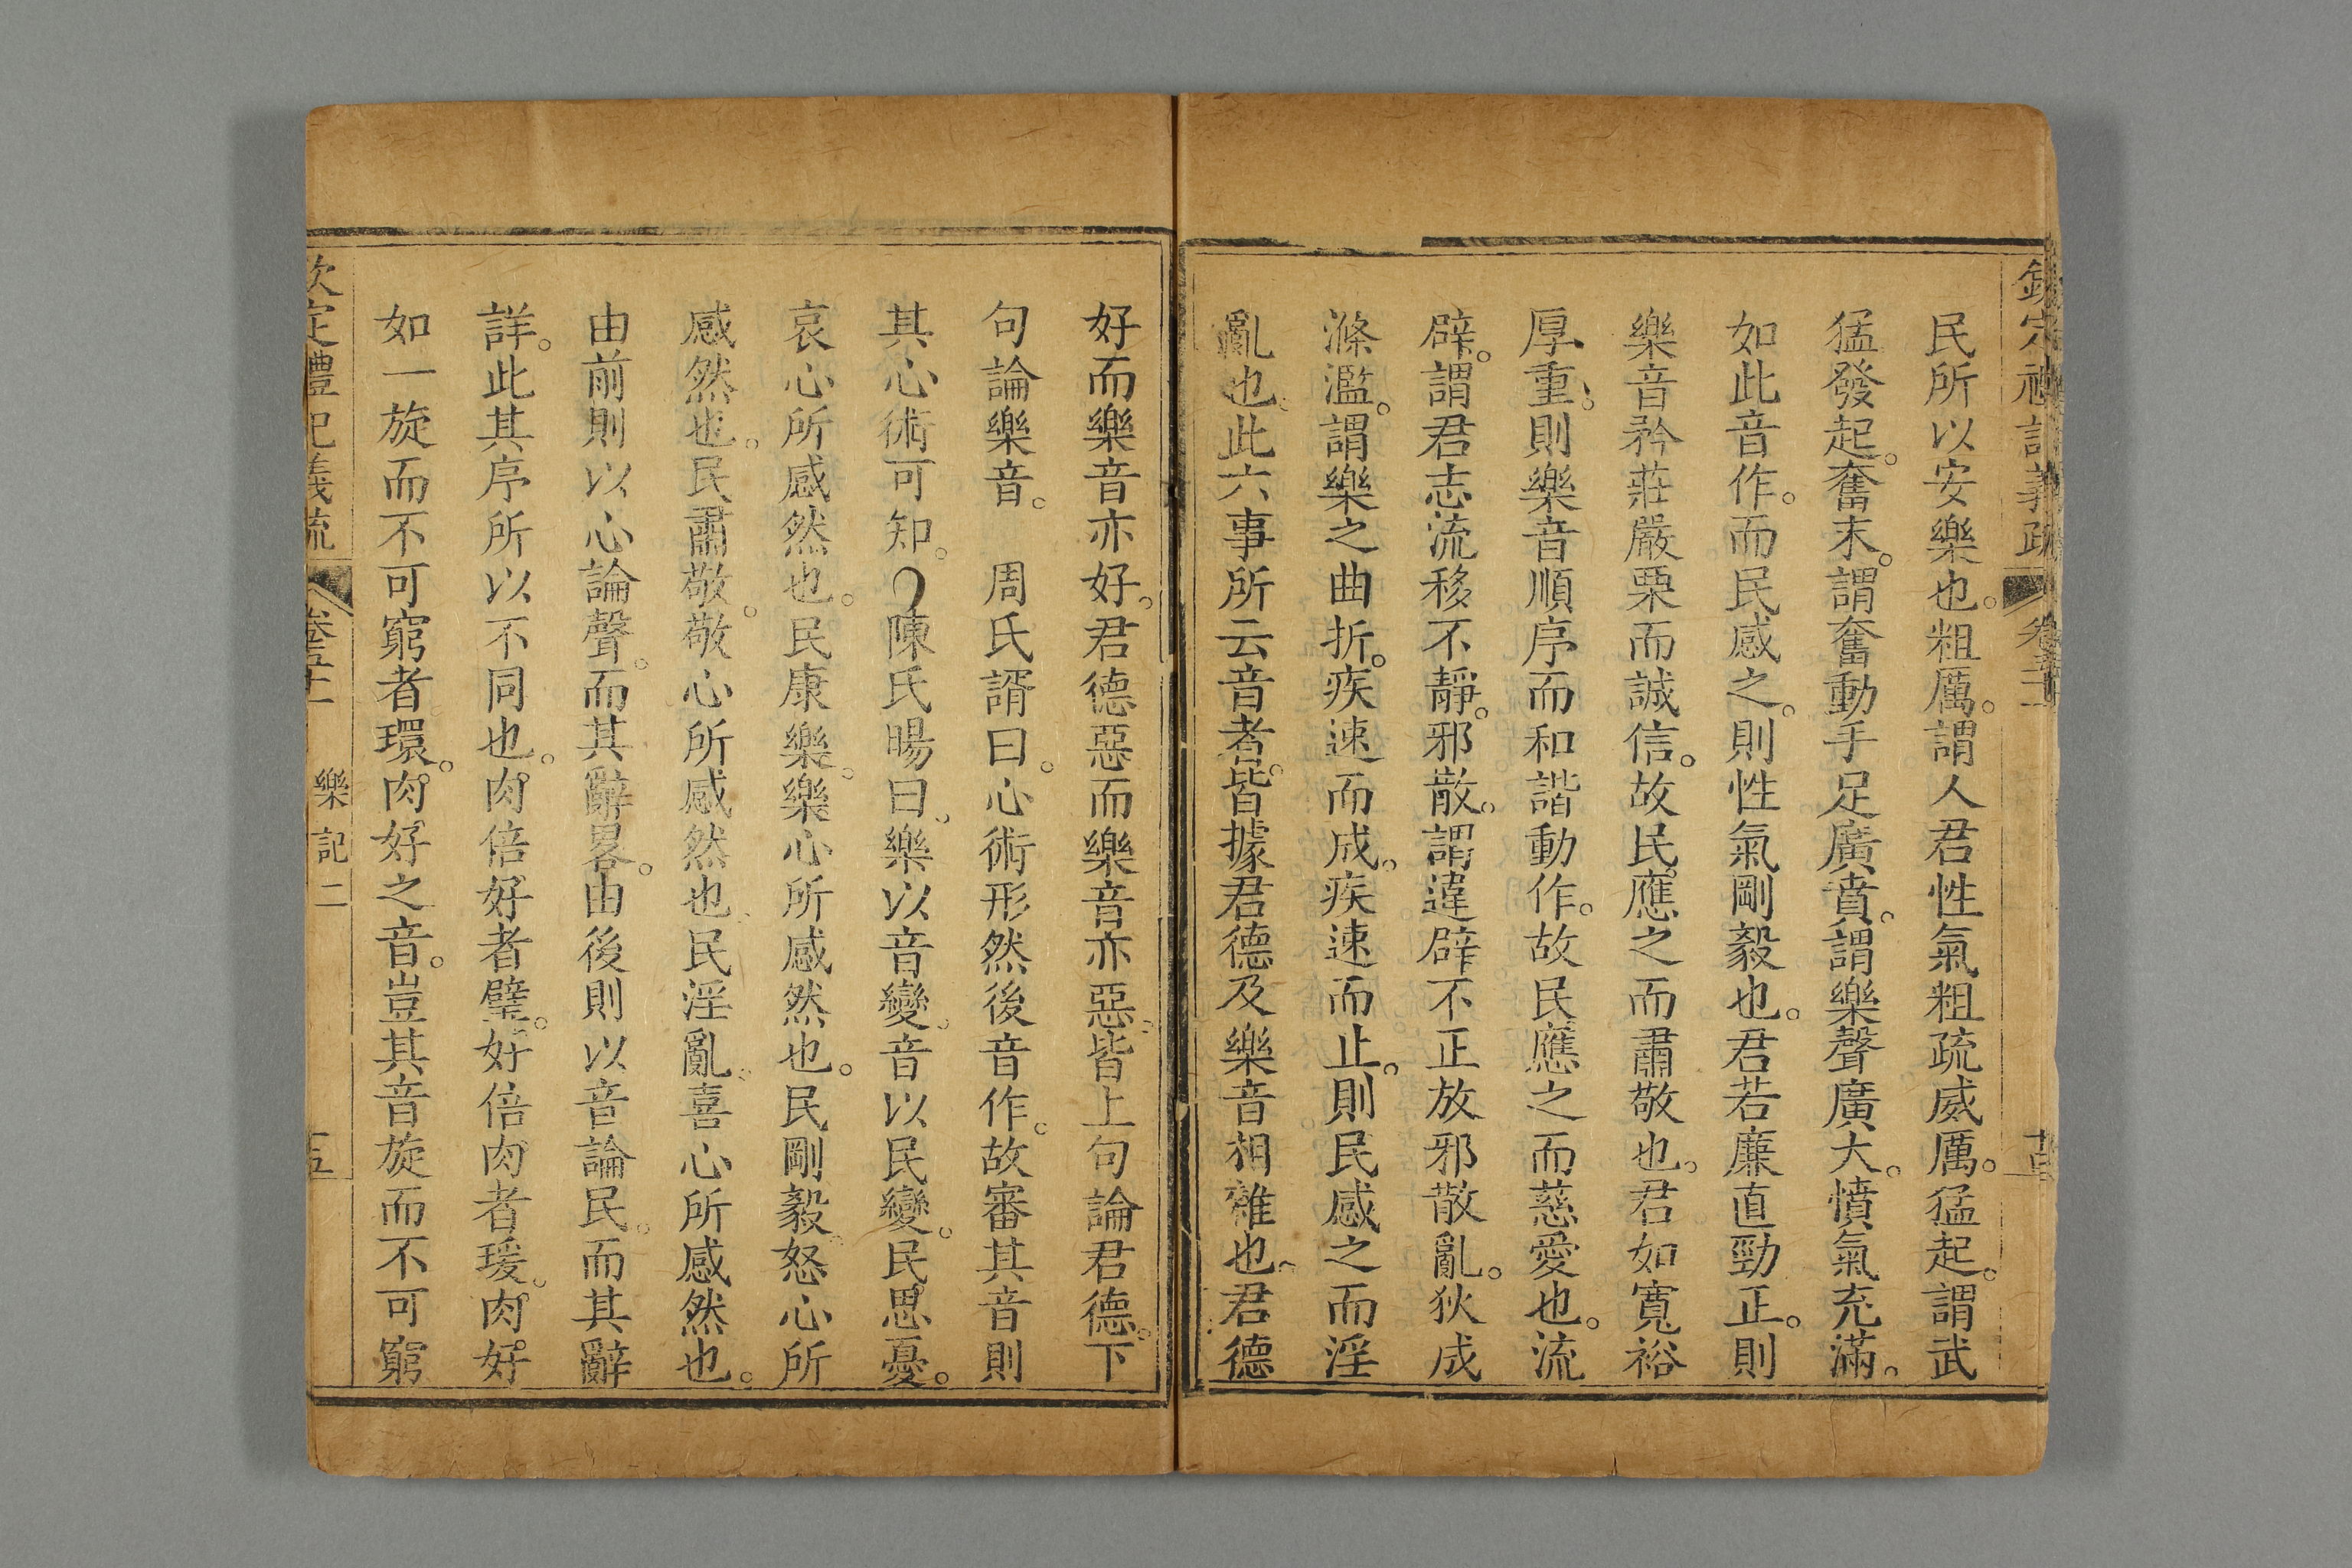 民所以安樂也。粗厲。謂人君性氣粗疏威厲。猛起。謂武
猛發起。奮末。謂奮動手足廣賁。謂樂聲廣大。憤氣充滿。
如此音作。而民感之。則性氣剛毅也。君若廉直勁正。則
樂音矜莊嚴栗而誠信。故民應之而肅敬也。君如寬裕
厚重。則樂音順序而和諧動作。故民應之而慈愛也。流
辟。謂君志流移不靜。邪散。謂違辟不正放邪散亂。狄成
滌濫。謂樂之曲折。疾速而成。疾速而止。則民感之而淫
亂也。此六事所云音者。皆據君德及樂音相雜也。君德
好而樂音亦好。君德惡而樂音亦惡。皆上句論君德。下
句論樂音。　周氏諝曰。心術形然後音作。故審其音則
其心術可知。陳氏暘曰。樂以音變。音以民變。民思憂。
哀心所感然也。民康樂。樂心所感然也。民剛毅。怒心所
感然也。民肅敬。敬心所感然也。民淫亂。喜心所感然也。
由前則以心論聲。而其辭畧。由後則以音論民。而其辭
詳。此其序所以不同也。肉倍好者璧。好倍肉者瑗。肉好
如一旋而不可窮者環。肉好之音。豈其音旋而不可窮
欽定禮記義疏
樂記二